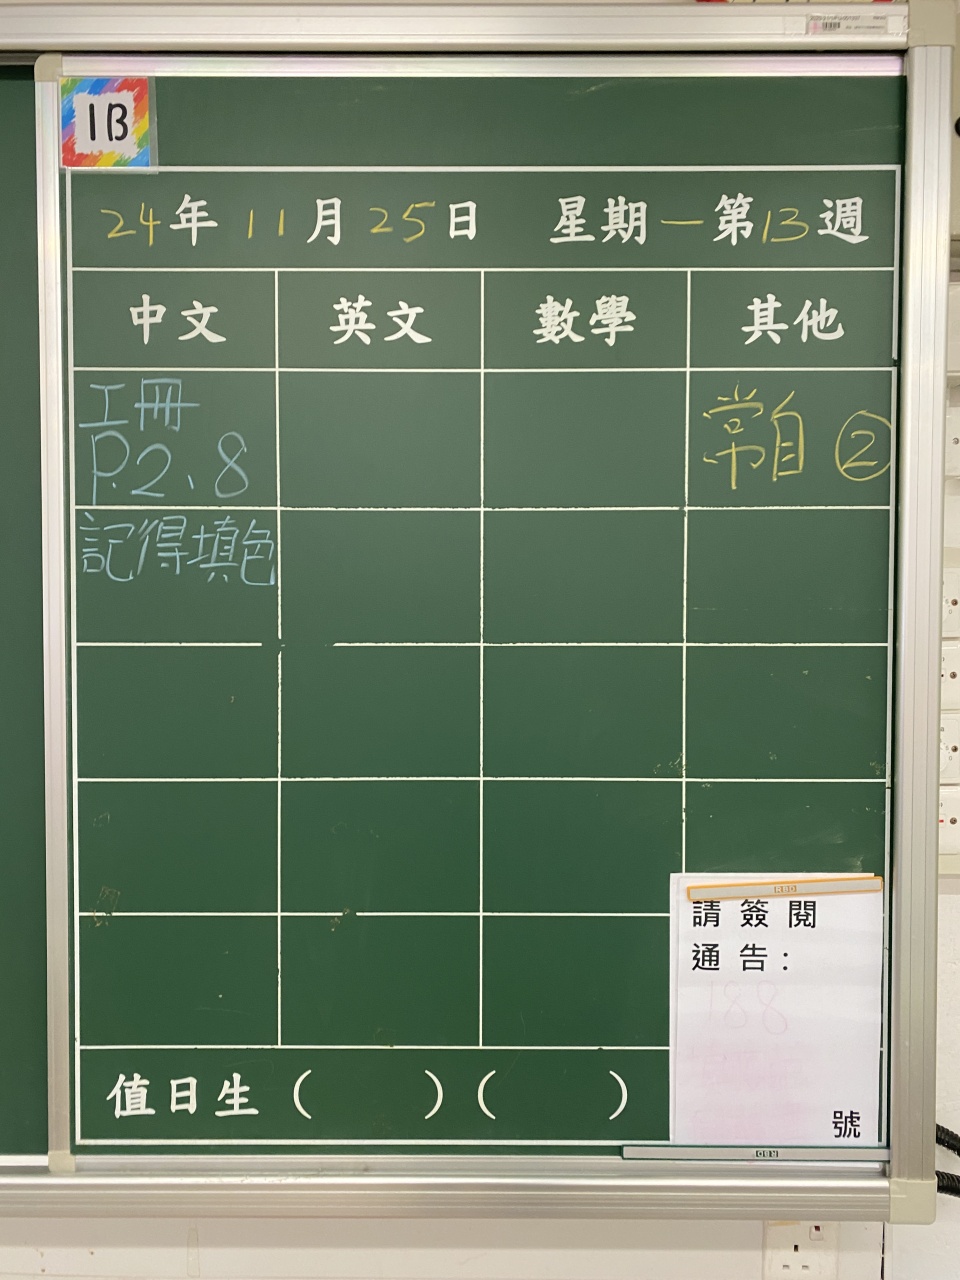 1B
24年 11月 25日 星期一第13週
中文 英文 數學 其他
工冊
P.2、8
常自 ②
記得填色
RBD
請簽閱
通告:
188
號
值日生 ( ) ( )
RBD